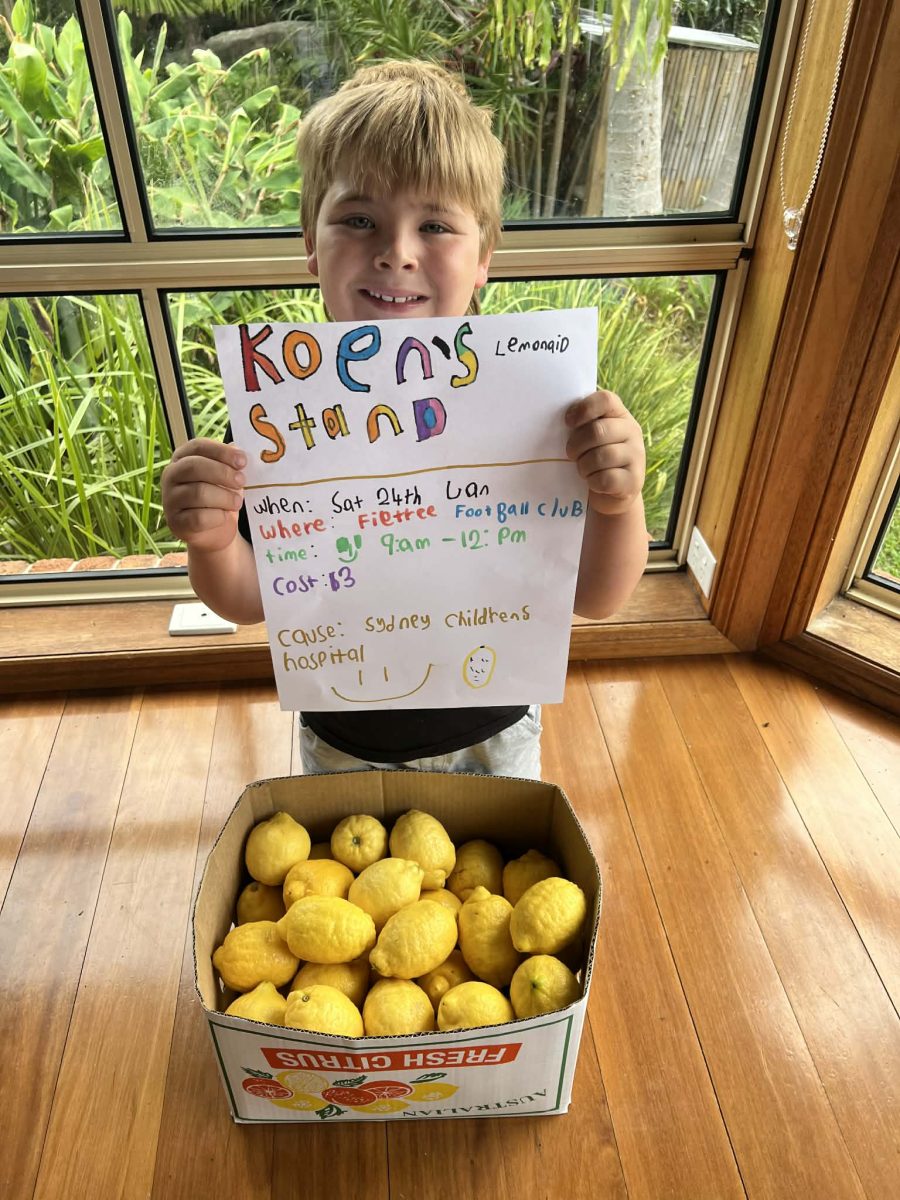 Koen's Lemonaid
Stand
when: Sat 24th Jan
where: Figtree Football Club
time: 9:am - 12:pm
Cost: $3
cause: sydney childrens
hospital
FRESH CITRUS
AUSTRALIAN